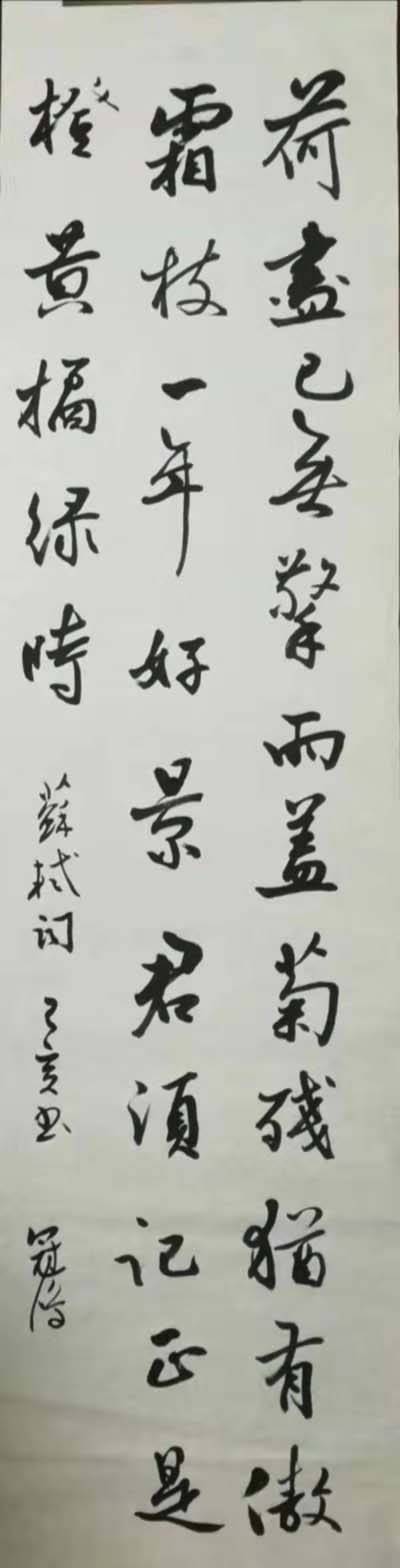 荷盡已無擎雨蓋菊殘猶有傲
霜枝一年好景君須記正是
橙黄橘绿時
蘇軾詞 己亥书 冠